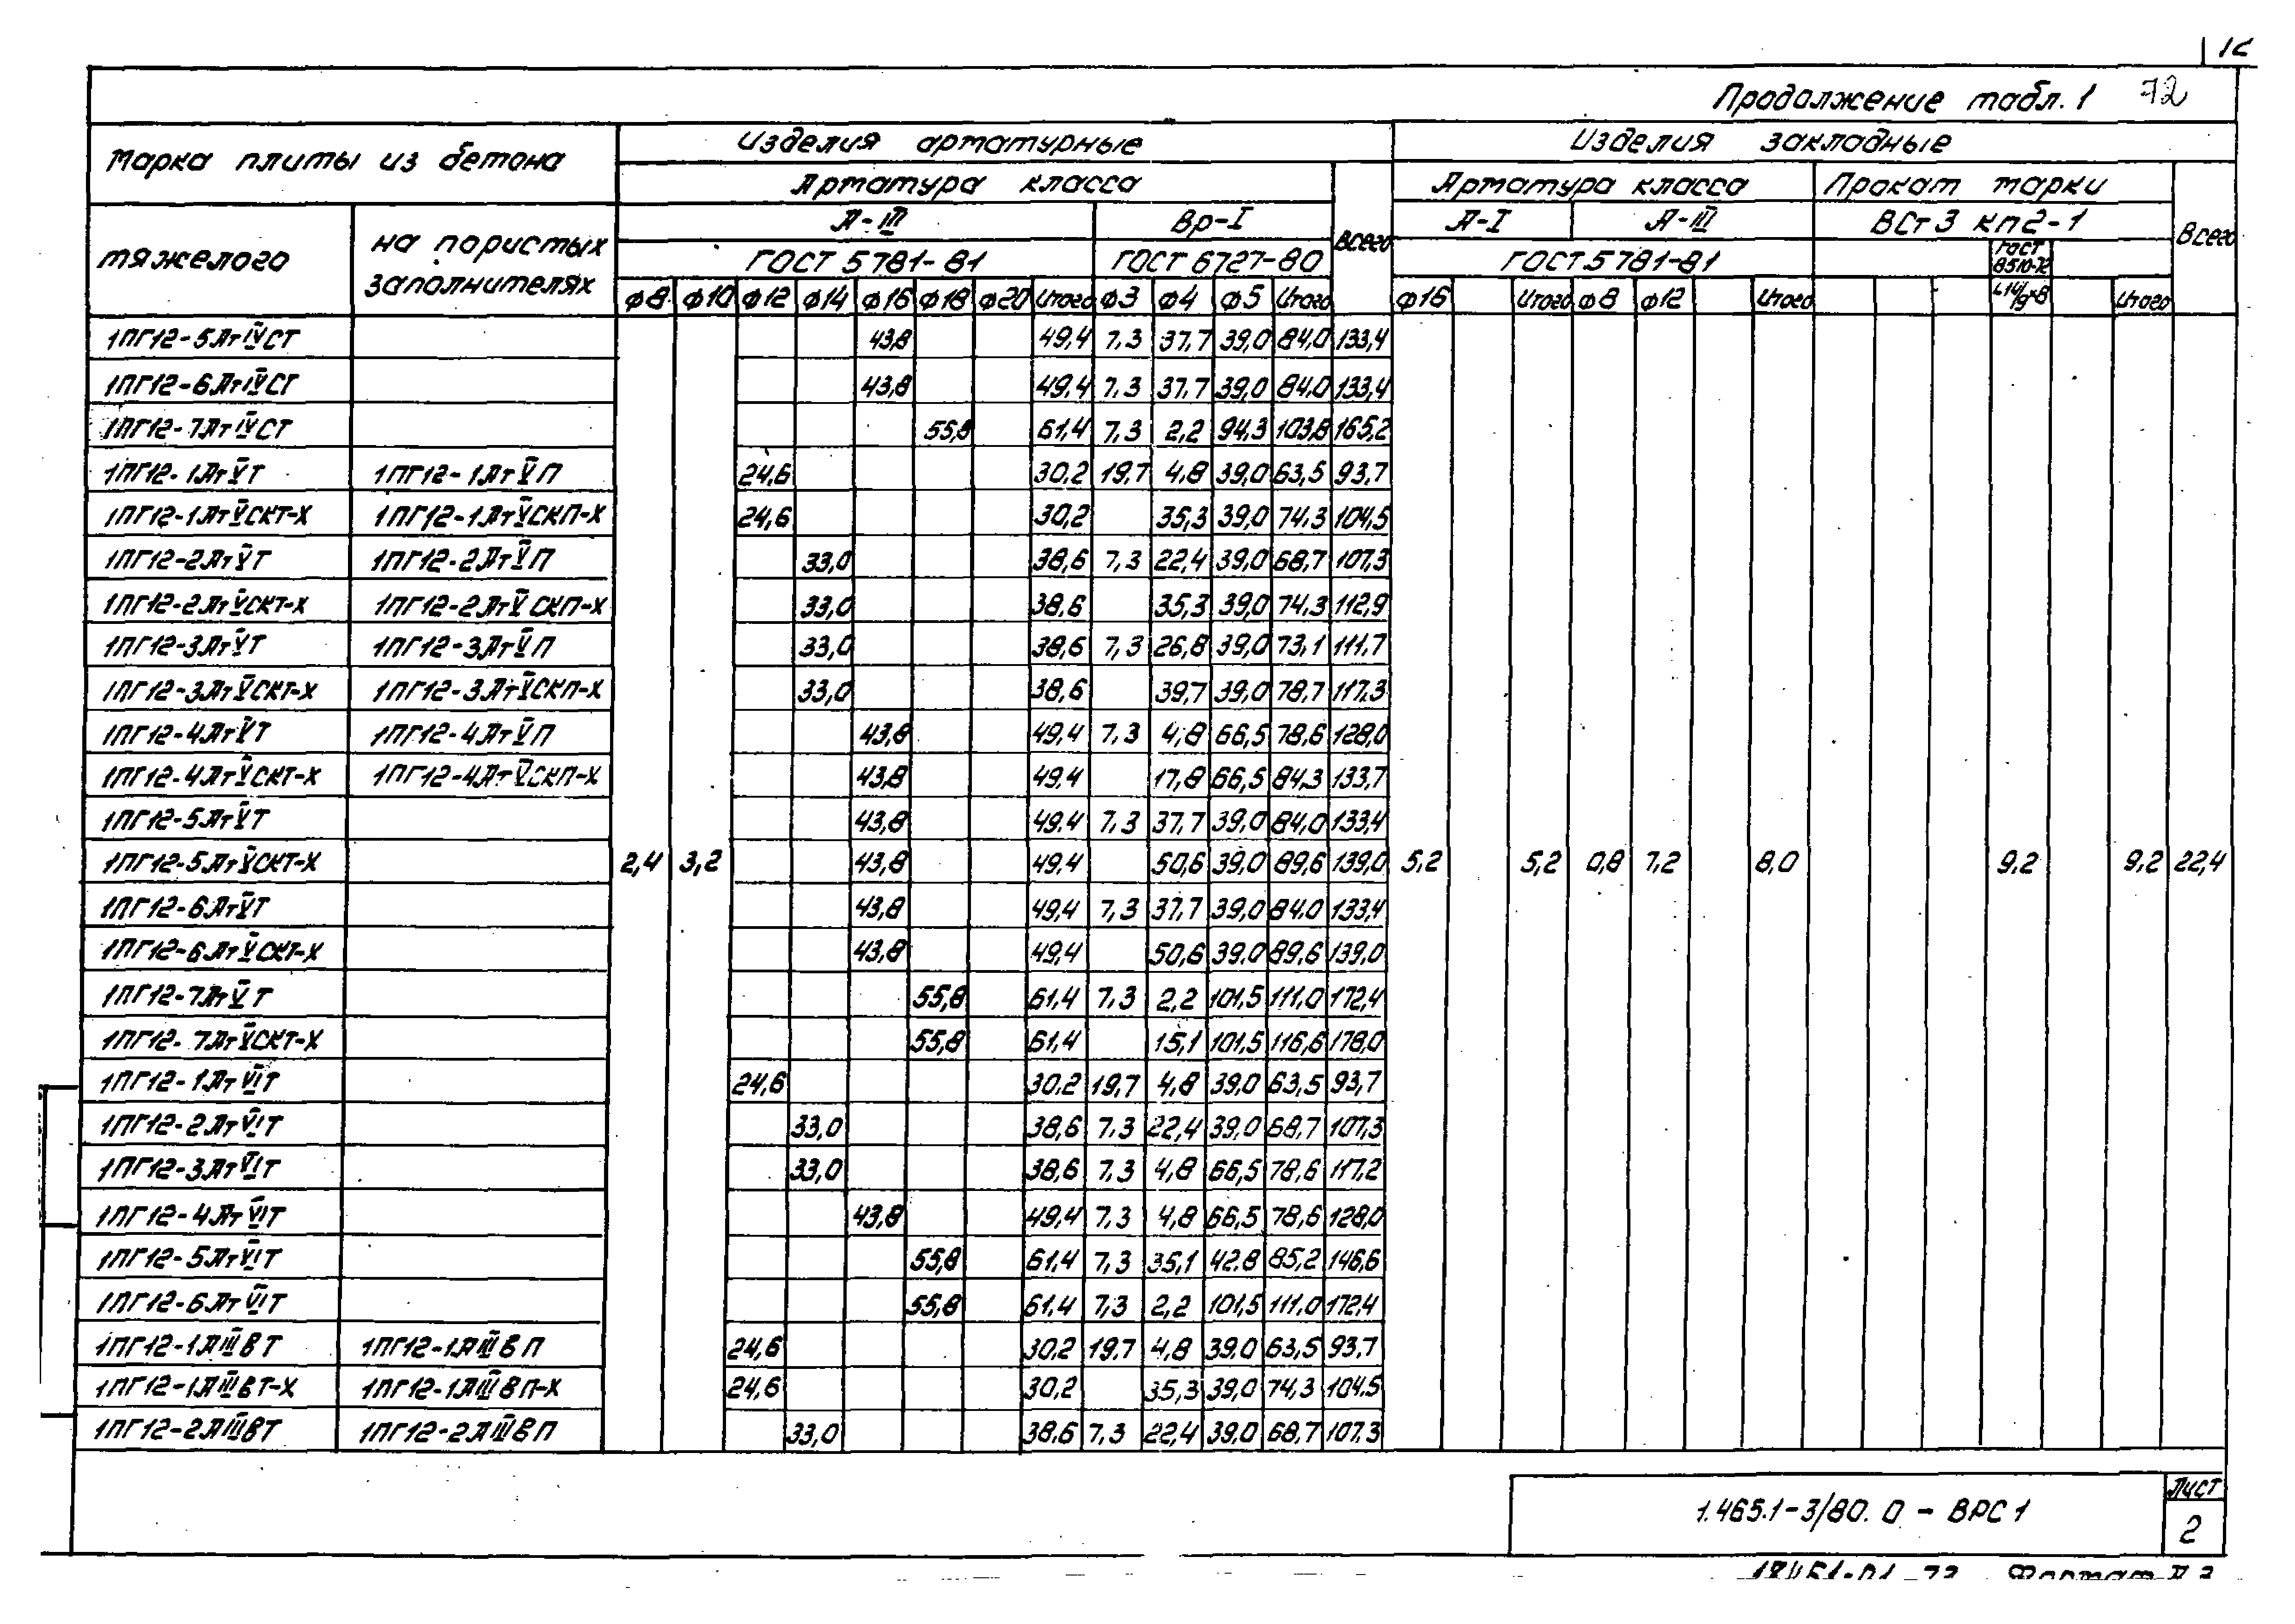 Продолжение табл. 1 72
Марка плиты из бетона Изделия арматурные Изделия закладные
Арматура класса Всего Арматура класса Прокат марки Всего
тяжелого на пористых заполнителях А-III Вр-I А-I А-III ВСт3 кп2-1
ГОСТ 5781-81 ГОСТ 6727-80 ГОСТ 5781-81 ГОСТ 8510-72
ф8 ф10 ф12 ф14 ф16 ф18 ф20 Итого ф3 ф4 ф5 Итого ф16 Итого ф8 ф12 Итого Итого
1ПГ12-5АтIVСТ 43,8 49,4 7,3 37,7 39,0 84,0 133,4
1ПГ12-6АтIVСТ 43,8 49,4 7,3 37,7 39,0 84,0 133,4
1ПГ12-7АтIVСТ 55,8 61,4 7,3 2,2 94,3 103,8 165,2
1ПГ12-1АтVТ 1ПГ12-1АтVП 24,6 30,2 19,7 4,8 39,0 63,5 93,7
1ПГ12-1АтVСКТ-Х 1ПГ12-1АтVСКП-Х 24,6 30,2 35,3 39,0 74,3 104,5
1ПГ12-2АтVТ 1ПГ12-2АтVП 33,0 38,6 7,3 22,4 39,0 68,7 107,3
1ПГ12-2АтVСКТ-Х 1ПГ12-2АтVСКП-Х 33,0 38,6 35,3 39,0 74,3 112,9
1ПГ12-3АтVТ 1ПГ12-3АтVП 33,0 38,6 7,3 26,8 39,0 73,1 111,7
1ПГ12-3АтVСКТ-Х 1ПГ12-3АтVСКП-Х 33,0 38,6 39,7 39,0 78,7 117,3
1ПГ12-4АтVТ 1ПГ12-4АтVП 43,8 49,4 7,3 4,8 66,5 78,6 128,0
1ПГ12-4АтVСКТ-Х 1ПГ12-4АтVСКП-Х 43,8 49,4 17,8 66,5 84,3 133,7
1ПГ12-5АтVТ 43,8 49,4 7,3 37,7 39,0 84,0 133,4
1ПГ12-5АтVСКТ-Х 2,4 3,2 43,8 49,4 50,6 39,0 89,6 139,0 5,2 5,2 0,8 7,2 8,0 9,2 9,2 22,4
1ПГ12-6АтVТ 43,8 49,4 7,3 37,7 39,0 84,0 133,4
1ПГ12-6АтVСКТ-Х 43,8 49,4 50,6 39,0 89,6 139,0
1ПГ12-7АтVТ 55,8 61,4 7,3 2,2 101,5 111,0 172,4
1ПГ12-7АтVСКТ-Х 55,8 61,4 15,1 101,5 116,6 178,0
1ПГ12-1АтVIТ 24,6 30,2 19,7 4,8 39,0 63,5 93,7
1ПГ12-2АтVIТ 33,0 38,6 7,3 22,4 39,0 68,7 107,3
1ПГ12-3АтVIТ 33,0 38,6 7,3 4,8 66,5 78,6 117,2
1ПГ12-4АтVIТ 43,8 49,4 7,3 4,8 66,5 78,6 128,0
1ПГ12-5АтVIТ 55,8 61,4 7,3 35,1 42,8 85,2 146,6
1ПГ12-6АтVIТ 55,8 61,4 7,3 2,2 101,5 111,0 172,4
1ПГ12-1АIIIВТ 1ПГ12-1АIIIВП 24,6 30,2 19,7 4,8 39,0 63,5 93,7
1ПГ12-1АIIIВТ-Х 1ПГ12-1АIIIВП-Х 24,6 30,2 35,3 39,0 74,3 104,5
1ПГ12-2АIIIВТ 1ПГ12-2АIIIВП 33,0 38,6 7,3 22,4 39,0 68,7 107,3
1.465.1-3/80. 0 - ВРС1
Лист
2